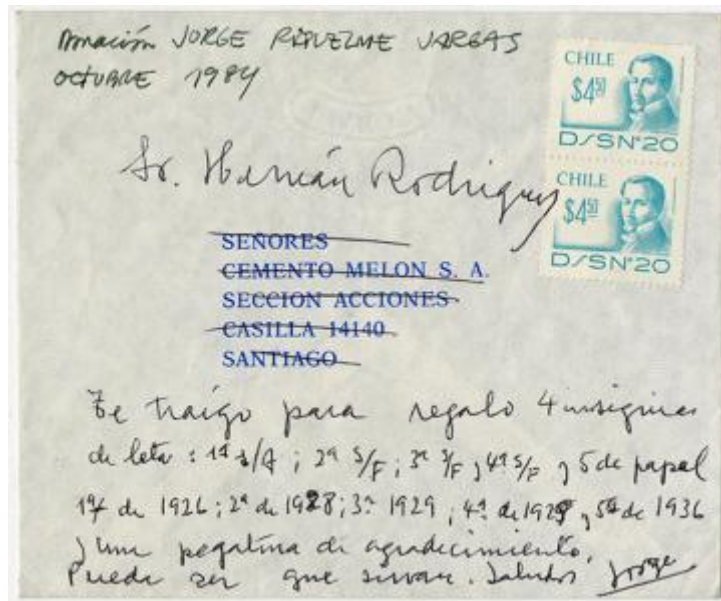 Donación JORGE RIQUELME VARGAS
OCTUBRE 1984
CHILE
$4.50
D/S Nº 20
CHILE
$4.50
D/S Nº 20
Sr. Hernán Rodriguez
SEÑORES
CEMENTO MELON S. A.
SECCION ACCIONES
CASILLA 14140
SANTIAGO
Te traigo para regalo 4 insignias
de lata : 1ª s/f ; 2ª s/F ; 3ª s/F y 4ª s/F y 5 de papel
1ª de 1926 ; 2ª de 1928 ; 3ª 1929 ; 4ª de y 5ª de 1936
y una pegatina de agradecimiento,
Puede ser que sirvan. Saludos Jorge